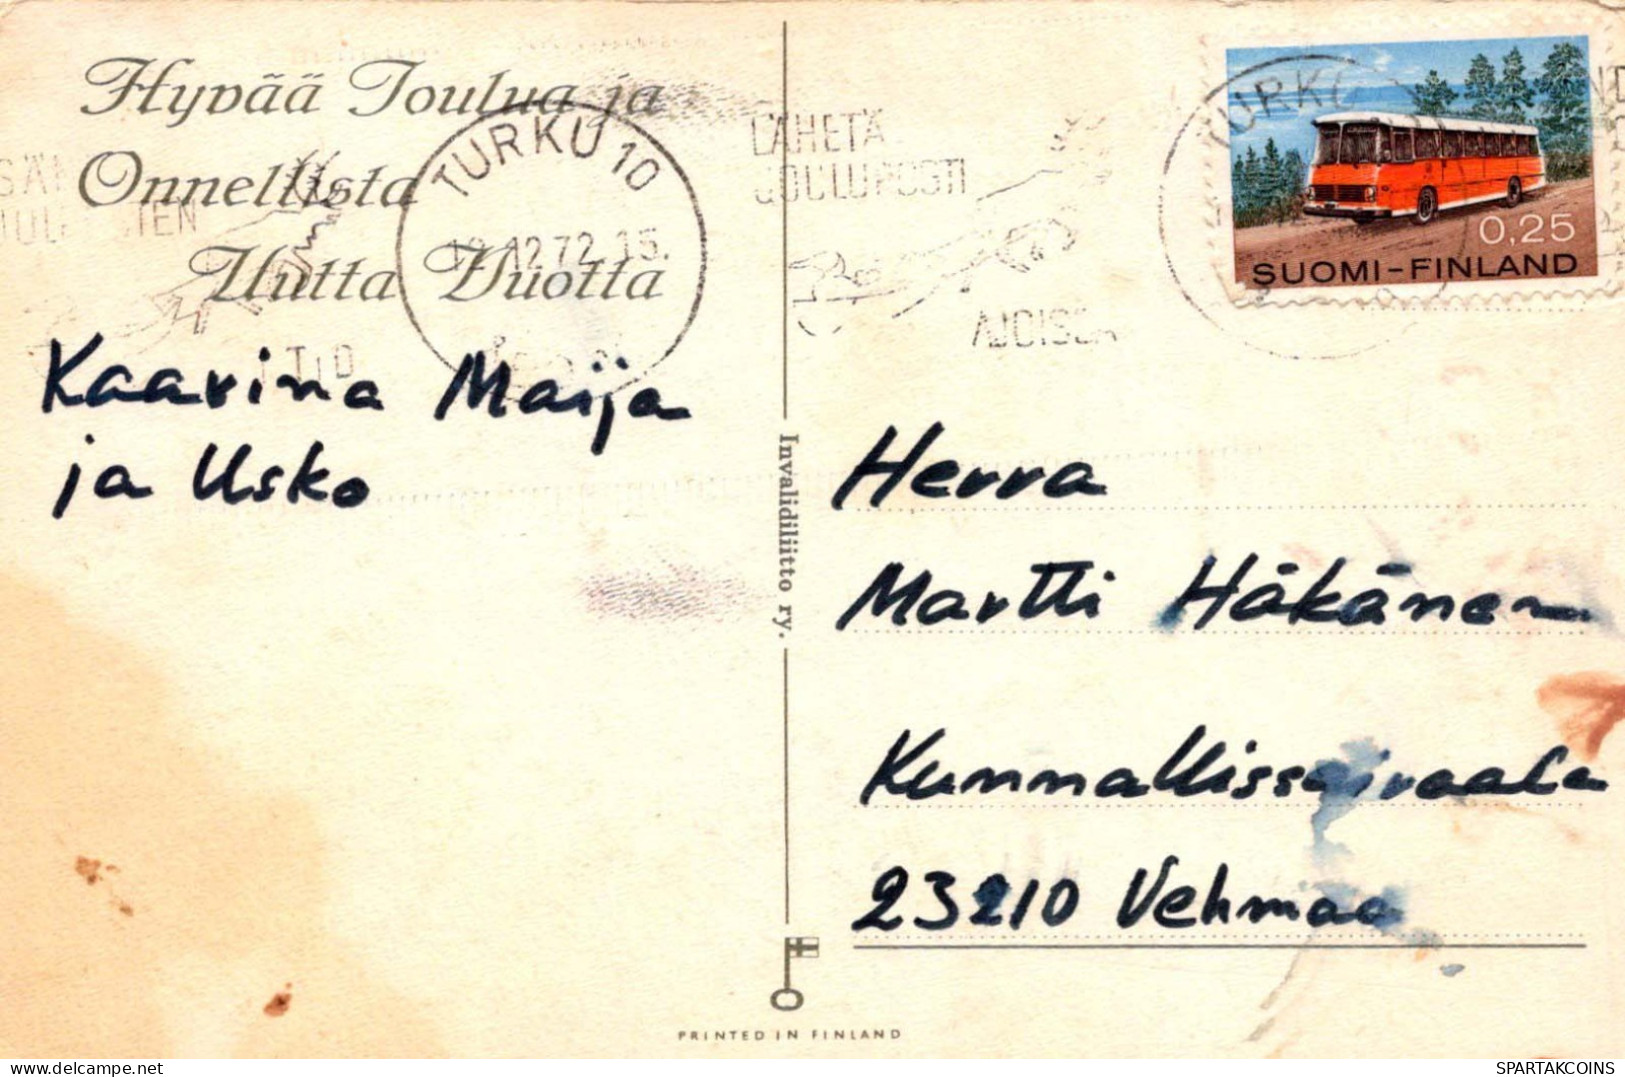 Hyvää Joulua ja
Onnellista
Uutta Vuotta
Kaarina Maija
ja Usko
TURKU 10
12.72.15.
LÄHETÄ
JOULUPOSTI
AJOISSA
TURKU
0,25
SUOMI-FINLAND
Invalidiliitto ry.
Herra
Martti Häkänen
Kunnallissairaala
23210 Vehmaa
PRINTED IN FINLAND
SPARTAKCOINS